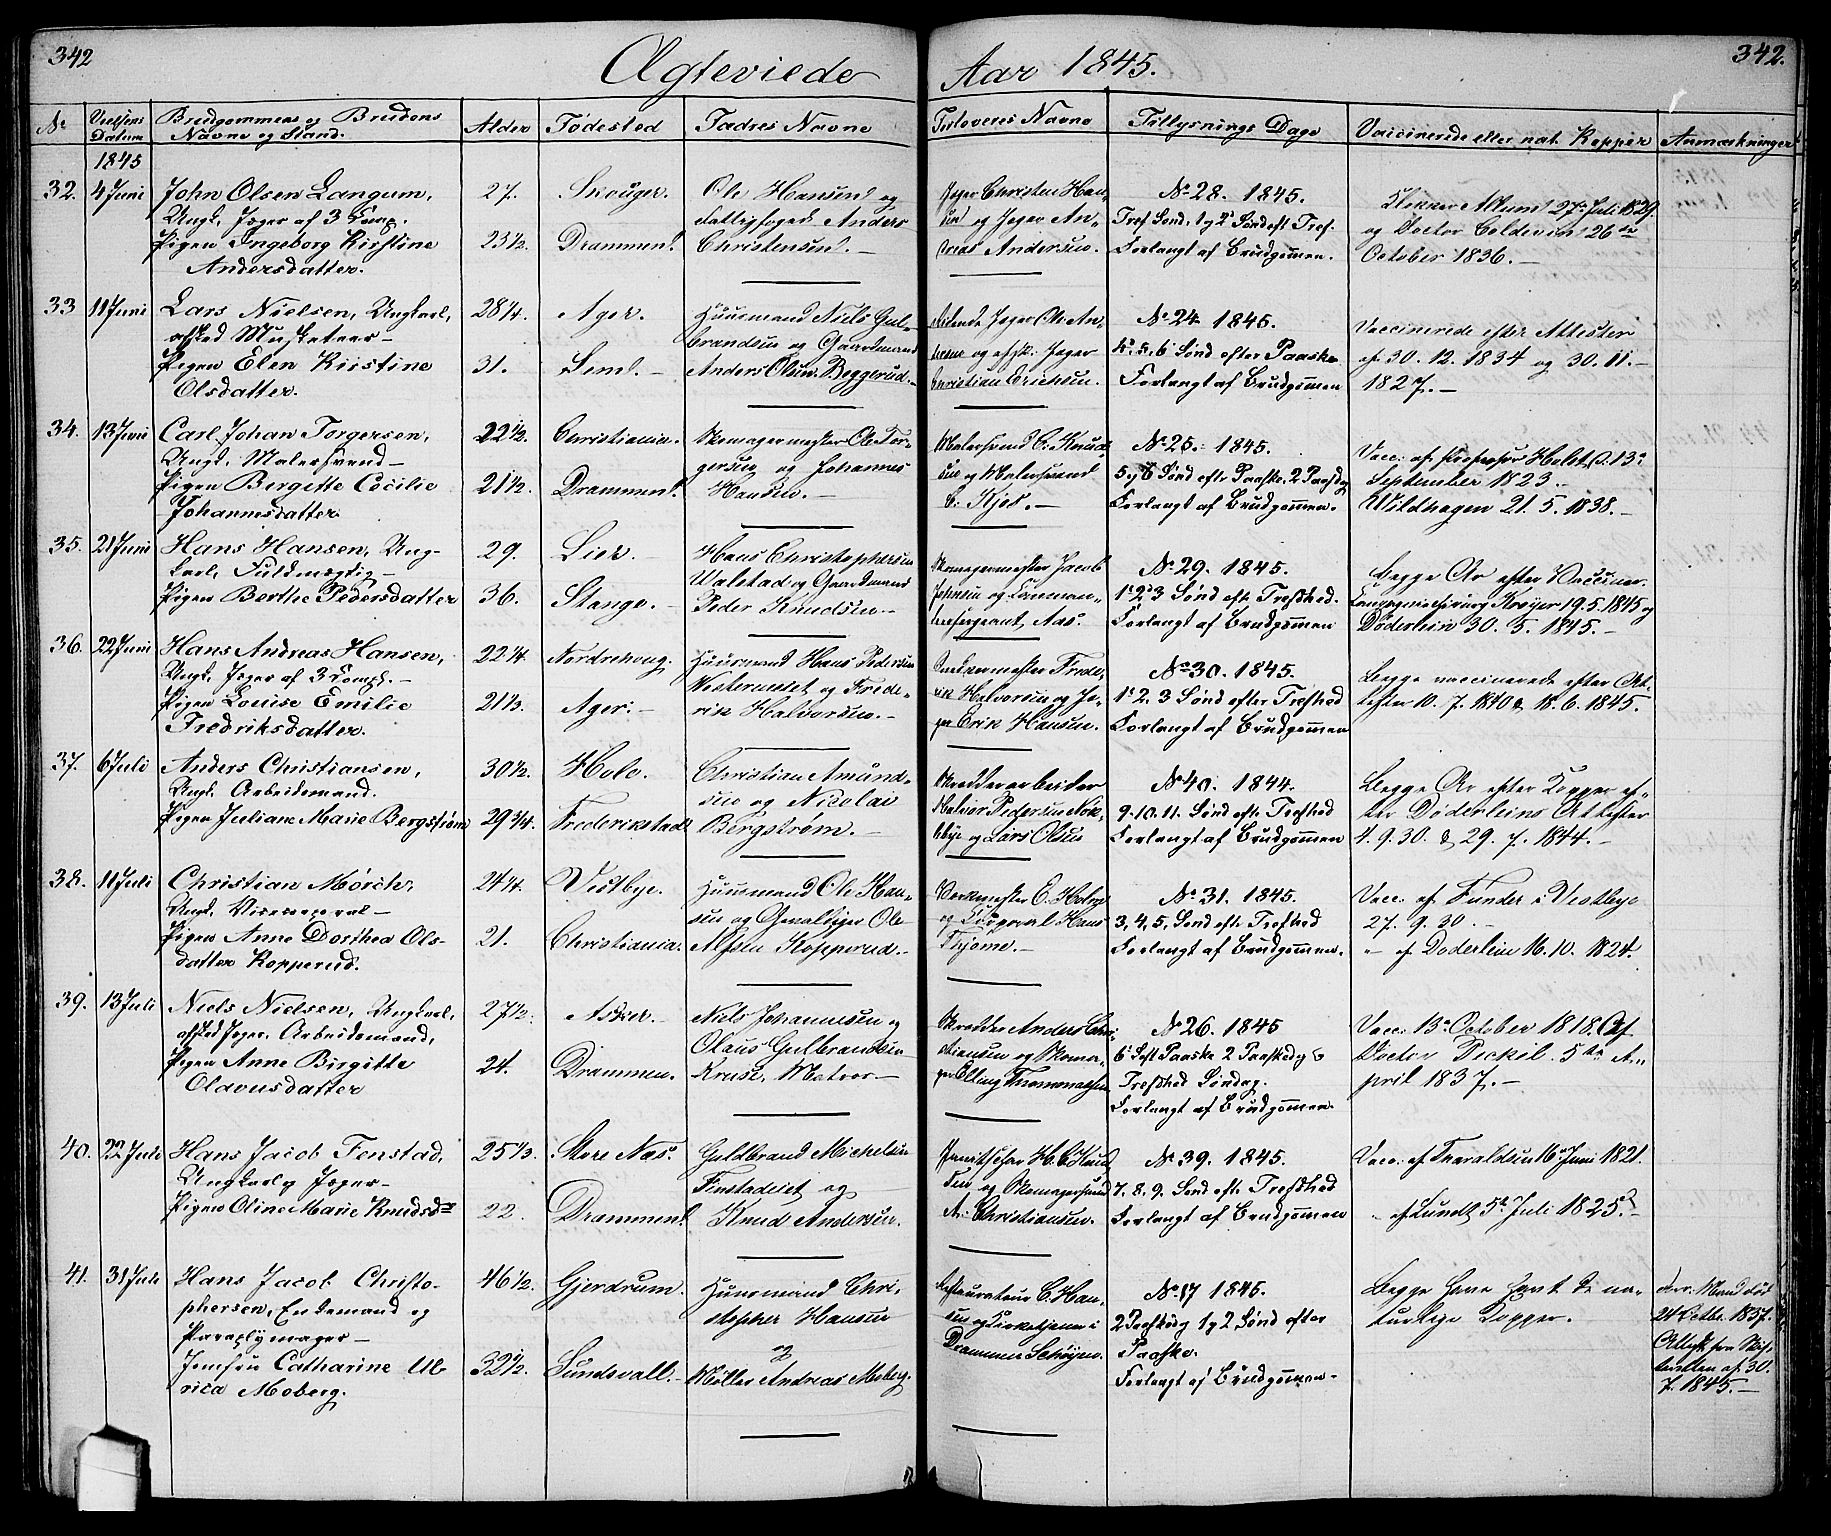 342
Ægteviede
Aar 1845.
342.
No
Vielsens Datum
Brudgommens og Brudens Navne og Stand.
Alder
Fødested
Fædres Navne
Forloveres Navne
Tillysnings Dage
Vaccinerede eller nat. Kopper
Anmærkninger
1845
32. 4 Juni
John Olsen Langum,
Ungk. Jæger af 3 Comp.
Pigen Ingeborg Kirstine
Andersdatter.
27.
23½.
Skouger.
Drammen.
Ole Hansen og
Anders
Christensen.
Jæger Christen Han-
sen og Jæger An-
dreas Andersen.
No 28. 1845.
Tref. Sønd. 1 og 2 Sønd eft Tref.
Forlangt af Brudgommen.
Klokker Aslund 27de Juli 1829
og Doctor Coldevin 26de
October 1836.
33 11 Juni
Lars Nielsen, Ungkarl,
afsked Musketeer
Pigen Elen Kirstine
Olsdatter.
28¼.
31.
Ager.
Huusmand Niels Gul-
brandsen og Gaardmand
Anders Olsen Beggerud.
Jæger Ole An-
og afsk. Jæger
Christian Erichsen.
No 24 1845.
4. 5. 6 Sønd efter Paaske
Forlangt af Brudgommen
Vaccinerede efter Attester
af 30. 12. 1834 og 30. 11.
1827.
34. 13 Juni
Carl Johan Torgersen,
Ungk. Malersvend
Pigen Birgitte Cecilie
Johannesdatter
22½.
21½.
Christiania.
Drammen.
Skomagermester Ole Tor-
gersen og Johannes
Hansen.
Malersvend C. Knud-
sen og Malersvend
C. Kjøs.
No 25. 1845.
5 og 6 Sønd efter Paaske. 2 Paaskedag
Forlangt af Brudgommen.
Vacc. af Professor Holst d. 13de
September 1823.
Wildhagen 21. 5. 1838.
35. 21 Juni
Hans Hansen, Ung-
karl, Fuldmægtig
Pigen Berthe Pedersdatter
29.
36.
Lier.
Stange.
Hans Christophersen
Walstad og Gaardmand
Peder Knudsen.
Skomagermester Jacob
Johnsen og
sergeant, Aas.
No 29. 1845.
1. 2. 3 Sønd eft. Trefshed.
Forlangt af Brudgommen
Begge Ar efter Vaccine.
Kreyer 19. 5. 1845 og
Døderlein 30. 5. 1845.
36. 22 Juni
Hans Andreas Hansen,
Ungk. Jæger af 3 Comp.
Pigen Louise Emilie
Fredriksdatter.
22¼.
21⅓.
Nordrehoug.
Ager.
Huusmand Hans Pedersen
og Frede-
rik Halvorsen.
Frede-
rik Halvorsen og Jæ-
ger Erik Hansen.
No 30. 1845.
1. 2. 3 Sønd efter Trefshed
Forlangt af Brudgommen
Begge vaccinerede efter At-
tester 10. 7. 1840 & 18. 6. 1845.
37. 6 Juli
Anders Christiansen,
Ungk. Arbeidsmand.
Pigen Juliane Marie Bergstrøm
30½.
29¾.
Hole.
Frederikstad
Christian Amund-
sen og Nicolai
Bergstrøm.
Skrædderarbeider
Halvor Pedersen Nok-
kbye og Lars Olsen
No 40. 1844.
9. 10. 11. Sønd eft. Trefshed
Forlangt af Brudgommen
Begge Ar efter Kopper ef-
ter Døderleins Attester
4. 9. 30. & 29. 7. 1844.
38. 11 Juli
Christian Mörch,
Ungk. Vicecorporal
Pigen Anne Dorthea Ols-
datter Kopperud.
24¼.
21.
Vestbye.
Christiania.
Huusmand Ole Han-
sen og Ole
Alfsen Kopperud.
Værkmester E. Holm
og Corporal Hans
Thjome.
No 31. 1845.
3, 4, 5, Sønd eft. Trefshed
Forlangt af Brudgommen.
Vacc. af Funder i Vestbye
27. 9. 30.
" af Døderlein 16. 10. 1824.
39. 13 Juli
Niels Nielsen, Ungkarl,
afsked Jæger, Arbeidsmand,
Pigen Anne Birgitte
Olavusdatter
27½.
24.
Asker.
Drammen.
Niels Johannesen og
Olaus Gulbrandsen
Kruse, Matros
Skrædder Anders Chri-
stiansen og Skoma-
ger Elling Thommassen
No 26. 1845
6 Søeft Paaske 2 Paaskedag
Trefshed Søndag.
Forlangt af Brudgommen.
Vacc. 13de October 1818. Af
Doctor Peckel 5te A-
pril 1837.
40. 22 Juli
Hans Jacob Fenstad,
Ungkarl og Jæger
Pigen Oline Marie Knudsdr
25⅓.
22.
Store Næs.
Drammen.
Guldbrand Michelsen
Fenstadeiet og
Knud Andersen.
og Skomagersvend
A. Christiansen.
No 39. 1845.
7. 8. 9. Sønd eft. Trefshed
Forlangt af Brudgommen
Vacc. af Tharaldsen 16de Juni 1821.
" af Lundt 5te Juli 1825.
41. 31 Juli
Hans Jacob Christo-
phersen, Enkemand og
Paraplymager
Jomfru Catharine Ul-
rica Moberg.
46½.
32½.
Gjerdrum.
Sundsvall.
Huusmand Chri-
stopher Hansen
og
Møller Andreas Moberg.
Restaurateur C. Han-
sen og Kirketjener i
Drammen Schøyen.
No 17 1845.
2 Paaskedag 1 og 2 Sønd efter
Paaske.
Forlangt af Brudgommen
Begge have havt de na-
turlige Kopper.
død
24 Octbr. 1837.
Attest fra Skif-
teretten af 30.
7. 1845.